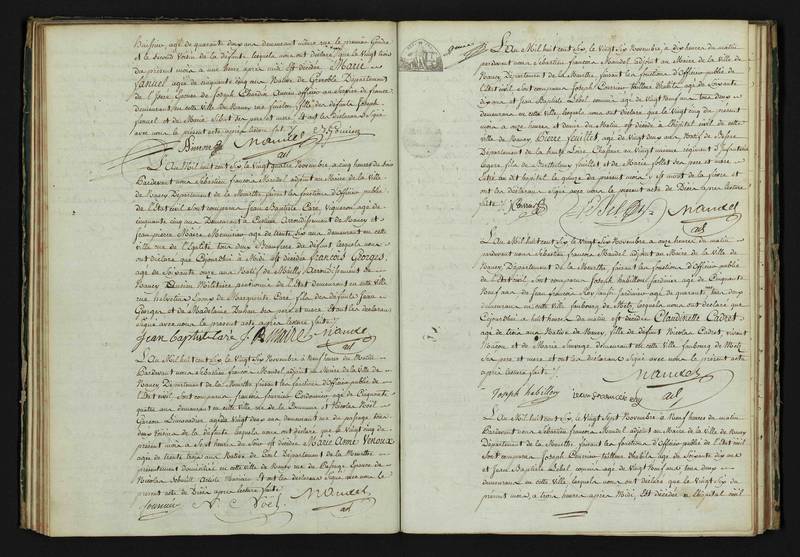 agé de quarante deux ans demeurant même rue le premier Gendre
et le second Voisin de la défunte, lesquels nous ont déclaré que le Vingt trois
du présent mois à une heure après midi est décédée Marie
Januel agée de cinquante cinq ans Native de Grenoble Département
de l'Isère Epouse de Joseph Chardin Ancien officier au Service de france
demeurant en cette Ville de Nancy rue fille des défunts Joseph
Januel et de Marie ses père et mère, et ont les déclarans Signé
avec nous le présent acte après lecture fait.
Mandel
adj
L'An Mil huit cent Six, le Vingt quatre Novembre à cinq heures du Soir
Pardevant nous Sébastien françois Mandel adjoint au Maire de la Ville de
Nancy Département de la Meurthe faisant les fonctions d'Officier public
de l'Etat civil sont comparus Jean Baptiste Caré, Vigneron agé de
cinquante cinq ans Demeurant à arrondissement de Nancy et
Jean pierre Maire Menuisier agé de trente Six ans demeurant en cette
ville rue de l'Egalité tous deux Beaufrères du défunt lesquels nous
ont déclaré que Cejourd'hui à Midi est décédé françois Georges,
agé de Soixante onze ans Natif de Arrondissement de
Nancy Militaire pensionné de l'Etat demeurant en cette ville
rue helvétius Epoux de Marguerite Caré, fils des défunts Jean
Georges et de Madelaine ses père et mère et ont les déclarans
Signé avec nous le présent acte après lecture faite.
Jean Baptiste Caré J. P. Maire Mandel
adj
L'An Mil huit cent Six, le Vingt Six Novembre à Neuf heures du Matin
Pardevant nous Sébastien françois Mandel, adjoint au Maire de la Ville de
Nancy Département de la Meurthe faisant les fonctions d'Officier public de
l'Etat civil sont comparus françois Fournier Cordonnier agé de Cinquante
quatre ans demeurant en cette ville rue de la et Nicolas Noël
Garçon agé de Vingt deux ans demeurant rue du passage tous
deux Voisins de la défunte lesquels nous ont déclaré que le Vingt cinq du
présent mois à Sept heures du Soir est décédée Marie Anne Venoux
agée de trente trois ans Native de Toul Département de la Meurthe
présentement domiciliée en cette ville de Nancy rue du Passage Epouse de
Nicolas et ont les déclarans Signé avec nous le
présent acte de Décès après lecture faite.
fournier N. Noël Mandel
adj
L'An Mil huit cent Six, le Vingt Six Novembre, à Dix heures du matin
pardevant nous Sébastien françois Mandel adjoint au Maire de la Ville de
Nancy Département de la Meurthe faisant les fonctions d'Officier public de
l'Etat civil sont comparus Joseph tailleur d'habits agé de Soixante
Dix ans et Jean Baptiste Lebel commis agé de Vingt Neuf ans tous deux
demeurans en cette Ville, lesquels nous ont déclaré que le Vingt cinq du présent
mois à onze heures et demie du Matin est décédé à l'hôpital civil de cette
ville de Nancy Pierre feuillet, agé de Vingt deux ans, Natif de
Département de la haute Loire Chasseur au Vingt unième régiment d'Infanterie
légère fils de Barthelemy feuillet et de Marie follet ses père et mère
Entré au dit hôpital le quinze du présent mois et est mort de la fièvre et
ont les déclarans Signé avec nous le présent acte de Décès après lecture
faite.
JB Lebel Mandel
adj
L'An Mil huit cent Six, le Vingt Six Novembre à onze heures du matin
pardevant nous Sébastien françois Mandel adjoint au Maire de la Ville de
Nancy Département de la Meurthe faisant les fonctions d'Officier public
de l'Etat civil, sont comparus Joseph habillon Jardinier agé de Cinquante
Neuf ans et Jean françois Jardinier agé de quarante ans tous deux
demeurans en cette Ville faubourg de Metz, lesquels nous ont déclaré que
Cejourd'hui à huit heures du matin est décédée Claudinette Cadret
agé de trois ans Native de Nancy fille de Nicolas Cadret, vivant
Maçon et de Marie demeurant en cette Ville faubourg de Metz
Ses père et mère et ont les déclarans Signé avec nous le présent acte
après lecture faite.
Mandel
Joseph habillon Jean françois adj
L'An Mil huit cent Six, le Vingt Sept Novembre à Neuf heures du matin
Pardevant nous Sébastien françois Mandel adjoint au Maire de la Ville de Nancy
Département de la Meurthe faisant les fonctions d'Officier public de l'Etat civil
Sont comparus Joseph tailleur d'habits agé de Soixante dix ans
et Jean Baptiste Lebel, commis agé de Vingt Neuf ans tous deux
demeurans en cette Ville, lesquels nous ont déclaré que le Vingt Six du
présent mois, à trois heures après Midi, est décédée à l'hôpital civil